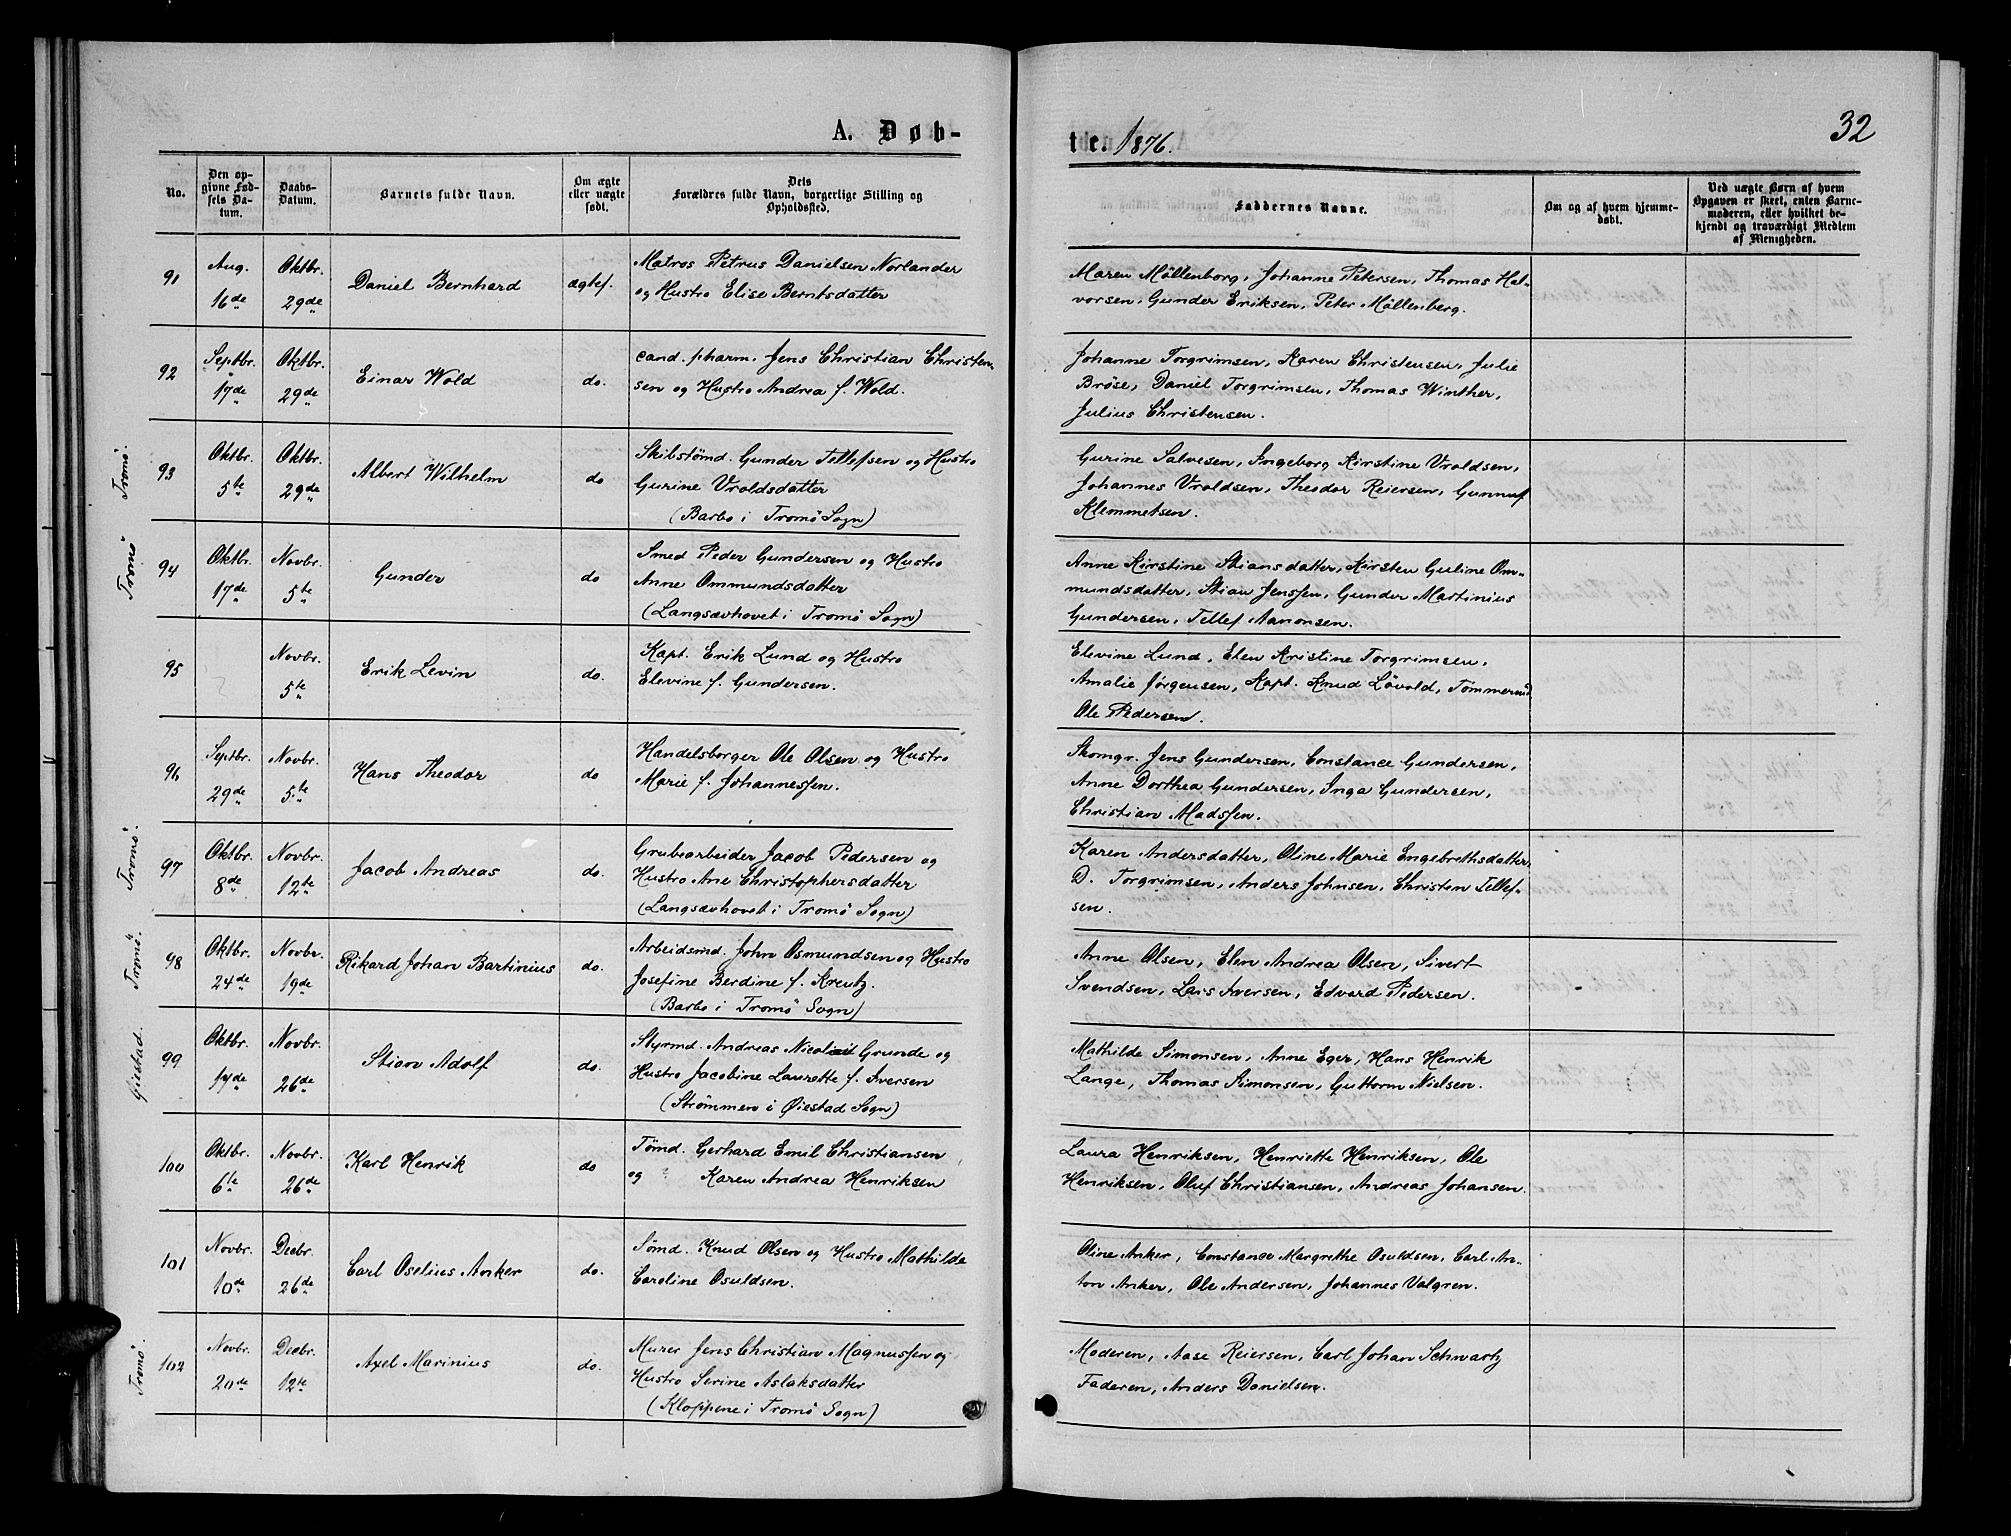 A. Døb-
te. 1876.
32
No.
Den op-
givne Fød-
sels Da-
tum.
Daabs-
Datum.
Barnets fulde Navn.
Om ægte
eller uægte
født.
Dets
Forældres fulde Navn, borgerlige Stilling og
Opholdssted.
Faddernes Navne.
Om og af hvem hjemme-
døbt.
Ved uægte Børn af hvem
Opgaven er skeet, enten Barne-
moderen, eller hvilket be-
kjendt og troværdigt Medlem
af Menigheden.
91
Aug.
16de
Oktbr.
29de
Daniel Bernhard
ægtef.
Matros Petrus Danielsen Norlander
og Hustro Elise Berntsdatter
Maren Möllenborg, Johanne Petersen, Thomas Hal-
vorsen, Gunder Eriksen, Peter Möllenberg.
92
Septbr.
17de
Oktbr.
29de
Einar Wold
do.
cand. pharm. Jens Christian Christen-
sen og Hustro Andrea f. Wold.
Johanne Torgrimsen, Karen Christensen, Julie
Bröse, Daniel Torgrimsen, Thomas Winther,
Julius Christensen.
Tromö.
93
Oktbr.
5te
Oktbr.
29de
Albert Wilhelm
do
Skibstömd. Gunder Tellefsen og Hustro
Gurine Vroldsdatter
(Barbo i Tromö Sogn)
Gurine Salvesen, Ingeborg Kirstine Vroldsen,
Johannes Vroldsen, Theodor Reiersen, Gunnuf
Klemmetsen.
Tromö
94
Oktbr.
17de
Novbr.
5te
Gunder
do
Smed Peder Gundersen og Hustro
Anne Ommundsdatter
(Langsævhovet i Tromö Sogn)
Anne Kirstine Stiansdatter, Kirsten Guline Om-
mundsdatter, Stian Jenssen, Gunder Martinius
Gundersen, Tellef Aanonsen.
95
Novbr.
5te
Erik Levin
do.
Kapt. Erik Lund og Hustro
Elevine f. Gundersen.
Elevine Lund, Elen Kristine Torgrimsen,
Amalie Jörgensen, Kapt. Knud Lövold, Tömmermd
Ole Pedersen.
96
Septbr.
29de
Novbr.
5te
Hans Theodor
do
Handelsborger Ole Olsen og Hustro
Marie f. Johannessen.
Skomgr. Jens Gundersen, Constance Gundersen,
Anne Dorthea Gundersen, Inga Gundersen,
Christian Madssen.
Tromö.
97
Oktbr.
8de
Novbr.
12te
Jacob Andreas
do.
Grubearbeider Jacob Pedersen og
Hustro Ane Christophersdatter
(Langsævhovet i Tromö Sogn)
Karen Andersdatter, Oline Marie Engebrethsdatter,
D. Torgrimsen, Anders Johnsen, Christen Tellef-
sen.
Tromö.
98
Oktbr.
24de
Novbr.
19de
Rikard Johan Bartinius
do.
Arbeidsmd. John Osmundsen og Hustro
Josefine Berdine f. Kreutz.
(Barbo i Tromö Sogn)
Anne Olsen, Elen Andrea Olsen, Sivert
Svendsen, Lars Iversen, Edvard Pedersen.
Øiestad.
99
Oktbr.
17de
Novbr.
26de
Stian Adolf
do.
Styrmd. Andreas Nicolai Grunde og
Hustro Jacobine Laurette f. Iversen
(Strömmen i Øiestad Sogn)
Mathilde Simonsen, Anne Eger, Hans Henrik
Lange, Thomas Simonsen, Guttorm Nielsen.
100
Oktbr.
6te
Novbr.
26de
Karl Henrik
do
Tömd. Gerhard Emil Christiansen
og ? Karen Andrea Henriksen
Laura Henriksen, Henriette Henriksen, Ole
Henriksen, Oluf Christiansen, Andreas Johansen.
101
Novbr.
10de
Decbr.
26de
Carl Oselius Anker
do.
Sömd. Knud Olsen og Hustro Mathilde
Caroline Osuldsen.
Oline Anker, Constance Margrethe Osuldsen, Carl An-
ton Anker, Ole Andersen, Johannes Valgren.
Tromö.
102
Novbr.
20de
Decbr.
12te
Axel Marinius
do.
Murer Jens Christian Magnussen og
Hustro Serine Aslaksdatter
(Kloppene i Tromö Sogn)
Moderen, Aase Reiersen, Carl Johan Schwartz
Faderen, Anders Danielsen.